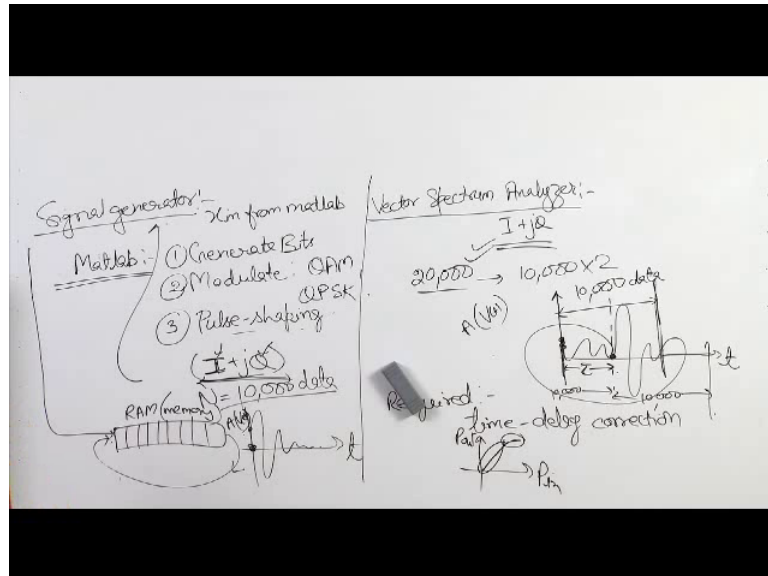 Signal generator:-
Xin from matlab
Matlab:-
① Generate Bits
② Modulate: QAM
QPSK.
③ Pulse-shaping
(I + jQ)
N = 10,000 data
RAM (memory)
t
Vector Spectrum Analyzer:-
I + jQ
20,000 → 10,000 × 2
10,000 data
A (Vol)
τ
t
10,000
Required:-
time-delay correction
Pin